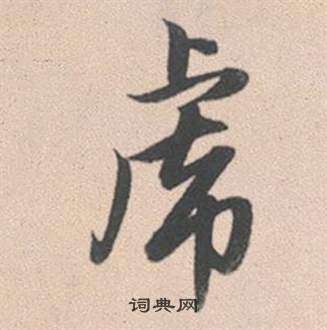 虎
词典网